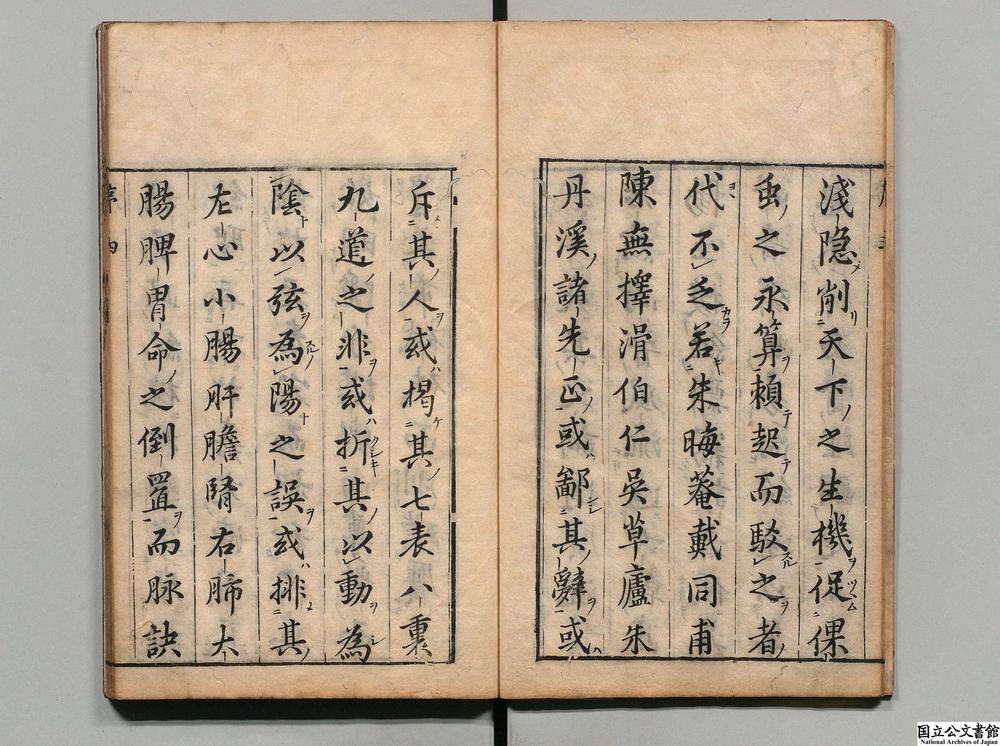 淺隐削天下之生機促倮
虫之永算頼起而駁之者
代不乏若朱晦菴戴同甫
陳無擇滑伯仁吳草廬朱
丹溪諸先正或鄙其辭或
斥其人或掲其七表八裏
九道之非或折其以動為
陰以弦為陽之誤或排其
左心小腸肝膽腎右肺大
腸脾胃命之倒置而脉訣
序 四
国立公文書館
National Archives of Japan